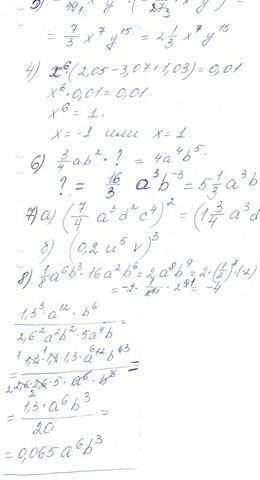 = 7/3 x⁷ y¹⁵ = 2 1/3 x⁷ y¹⁵
4) x⁶(2,05-3,07+1,03)=0,01
x⁶·0,01=0,01
x⁶=1.
x=-1 или x=1
6) 3/4 ab²·? = 4a⁴b⁵
? = 16/3 a³b⁻³ = 5 1/3 a³b
7) а) (7/4 a³d²c⁴)² = (1 3/4 a³d
б) (0,2u⁵v)³
8) 1/8 a⁶b³·16a²b⁶=2a⁸b⁹=2·(1/2)⁸·(-2)
=-2· 2⁹ = -4
1,3³·a¹²·b⁶
2,6²a²b²·5a⁴b =
= 1,3·1,3·1,3·a¹²b⁶
2,6·2,6·5·a⁶·b³ =
= 1,3·a⁶b³
20 =
=0,065a⁶b³